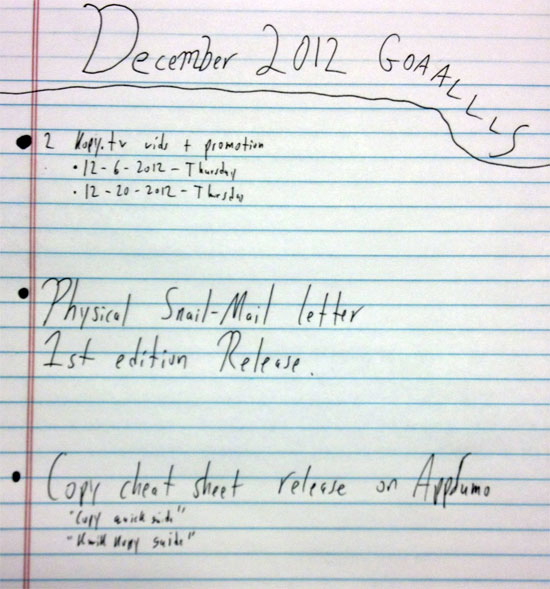 December 2012 GOAALLLLS
2 Kopy.tv vids + promotion
• 12-6-2012 - Thursday
• 12-20-2012 - Thursday
Physical Snail-Mail letter
1st edition Release.
Copy cheat sheet release on AppSumo
"Copy quick guide"
"Kwik Kopy guide"